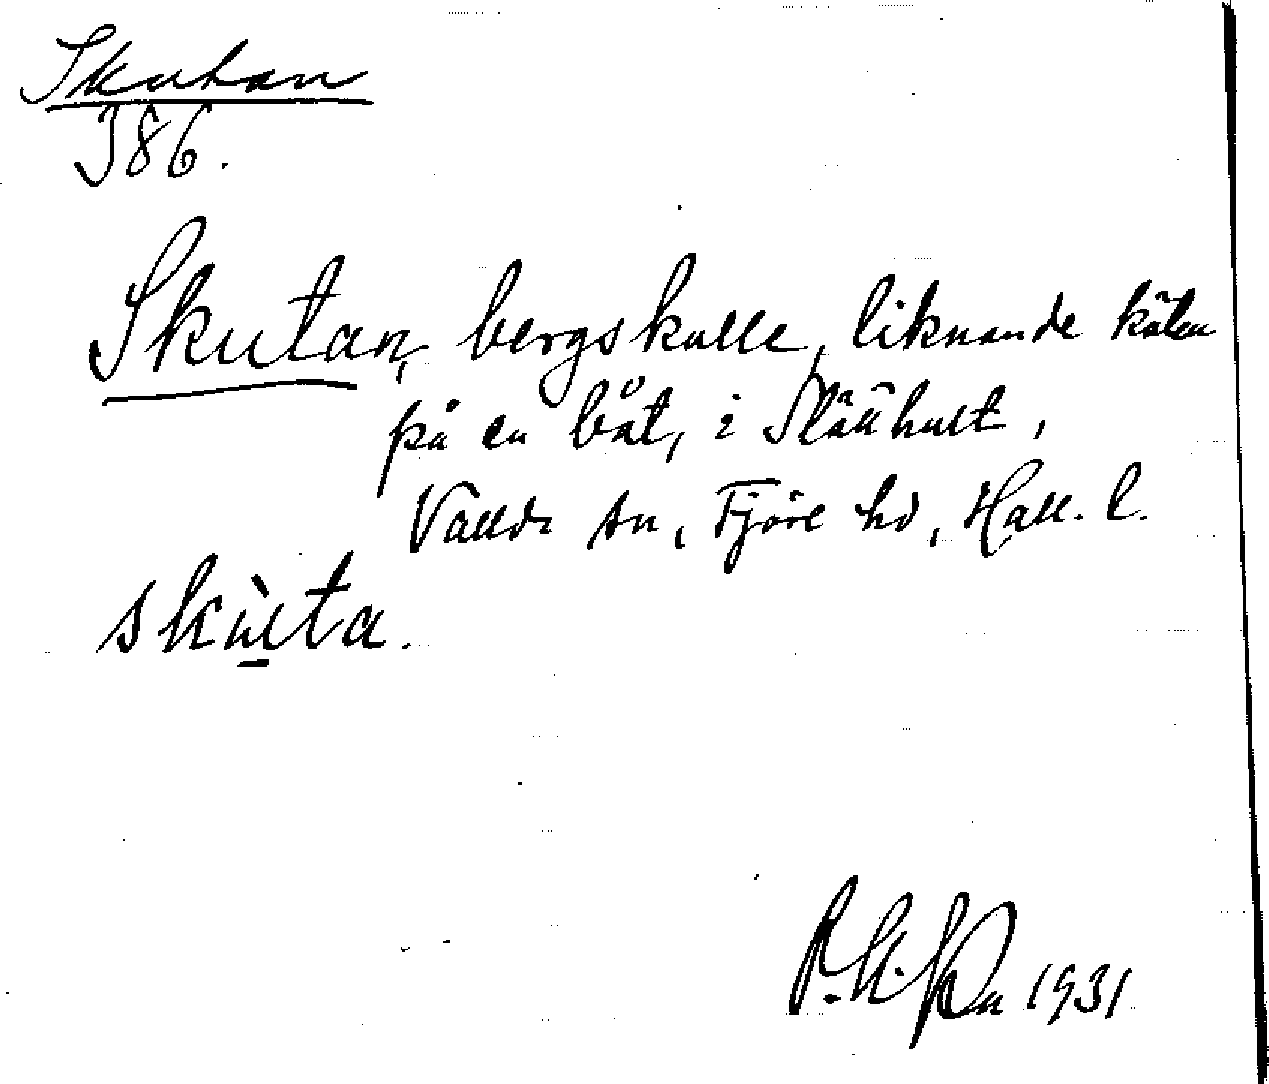 Skutan
386.
Skutan, bergskulle, liknande kölen
på en båt, i Släähult,
Vallda sn, Fjäre hd, Hall. l.
skùta.
1931